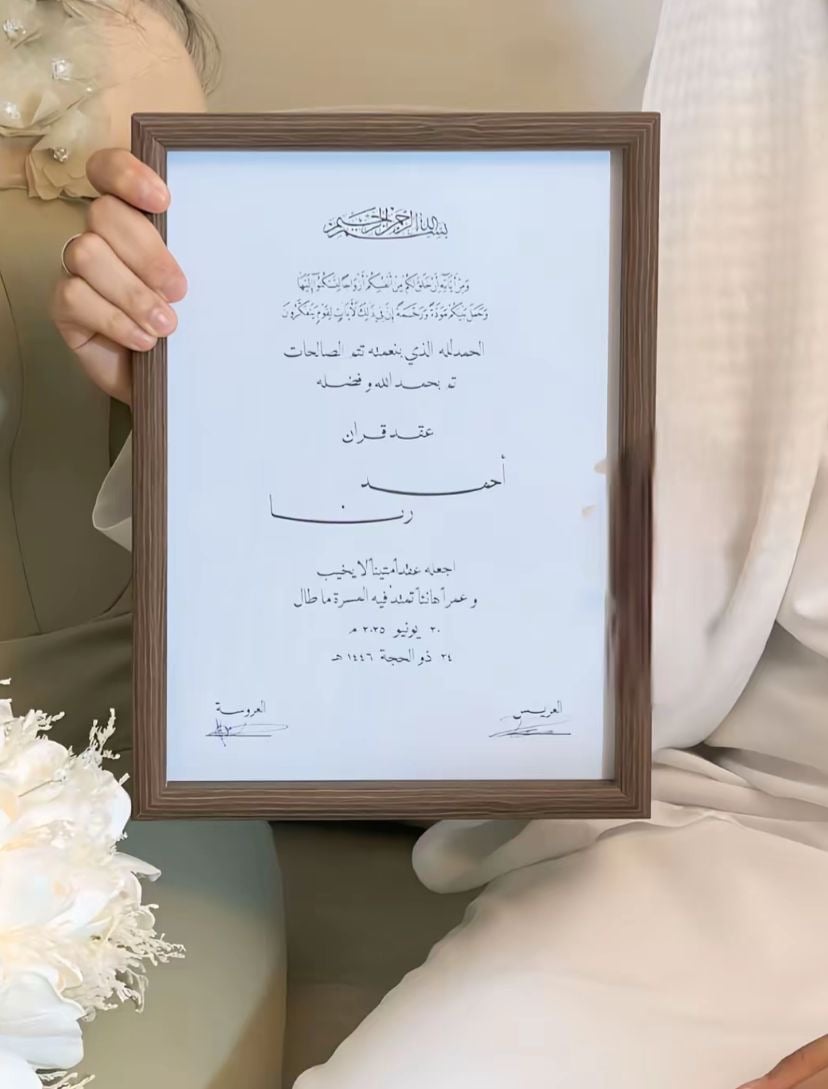 بسم الله الرحمن الرحيم
وَمِنْ آيَاتِهِ أَنْ خَلَقَ لَكُمْ مِنْ أَنْفُسِكُمْ أَزْوَاجًا لِتَسْكُنُوا إِلَيْهَا
وَجَعَلَ بَيْنَكُمْ مَوَدَّةً وَرَحْمَةً إِنَّ فِي ذَلِكَ لَآيَاتٍ لِقَوْمٍ يَتَفَكَّرُونَ
الحمدلله الذي بنعمته تتم الصالحات
تم بحمد الله و فضله
عقد قران
أحمد
رنا
اجعله عقداً متيناً لا يخيب
و عمراً هانئاً تمتد فيه المسرة ما طال
٢٠ يونيو ٢٠٢٥ م
٢٤ ذو الحجة ١٤٤٦ هـ
العريس
العروسة